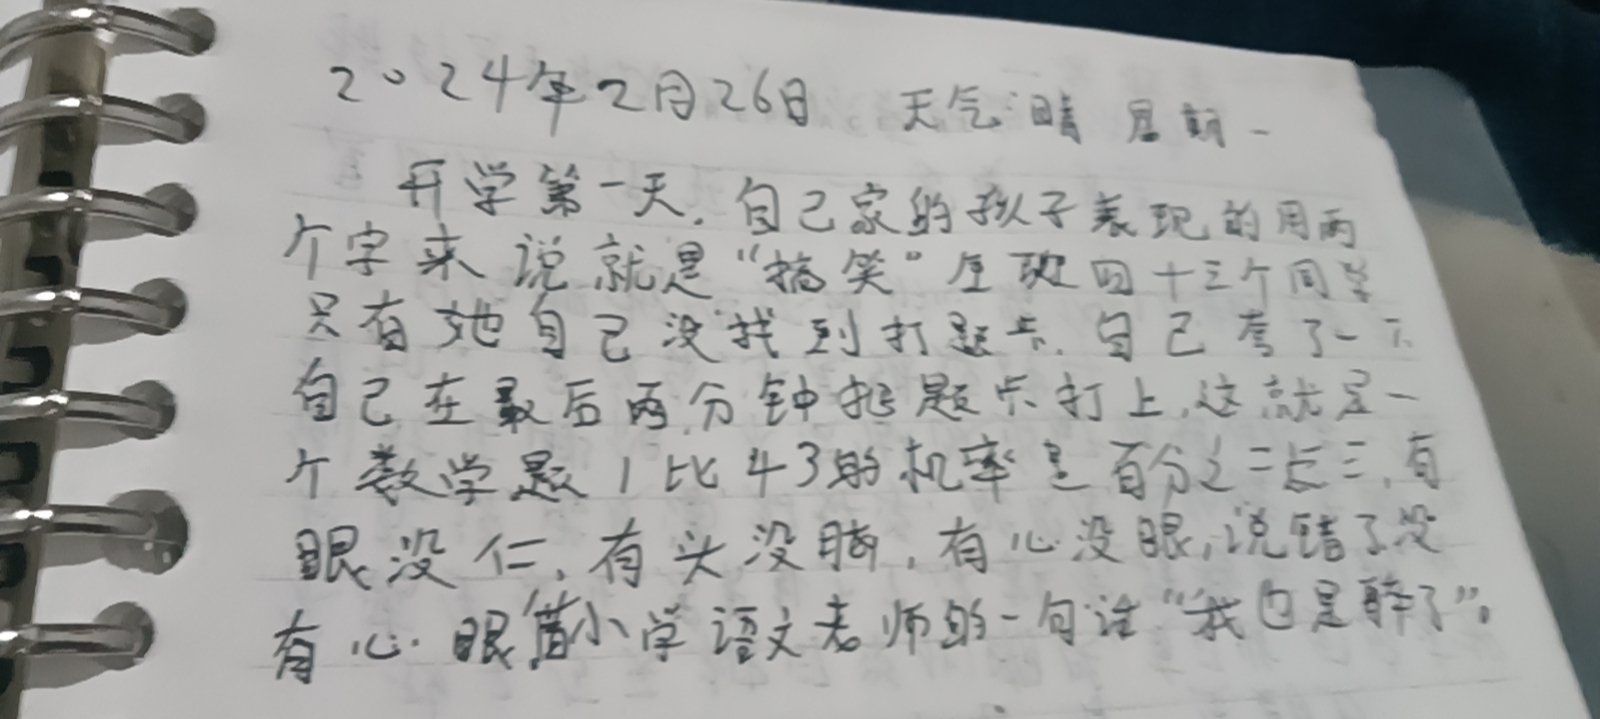 2024年2月26日 天气晴 星期一
开学第一天,自己家的孩子表现的用两
个字来说就是“搞笑”全班四十三个同学
只有她自己没找到打题卡,自己夸了一下
自己在最后两分钟把题卡打上,这就是一
个数学题1比43的机率是百分之二点三,有
眼没仁,有头没脑,有心没眼,说错了没
有心眼,借小学语文老师的一句话“我也是醉了”。